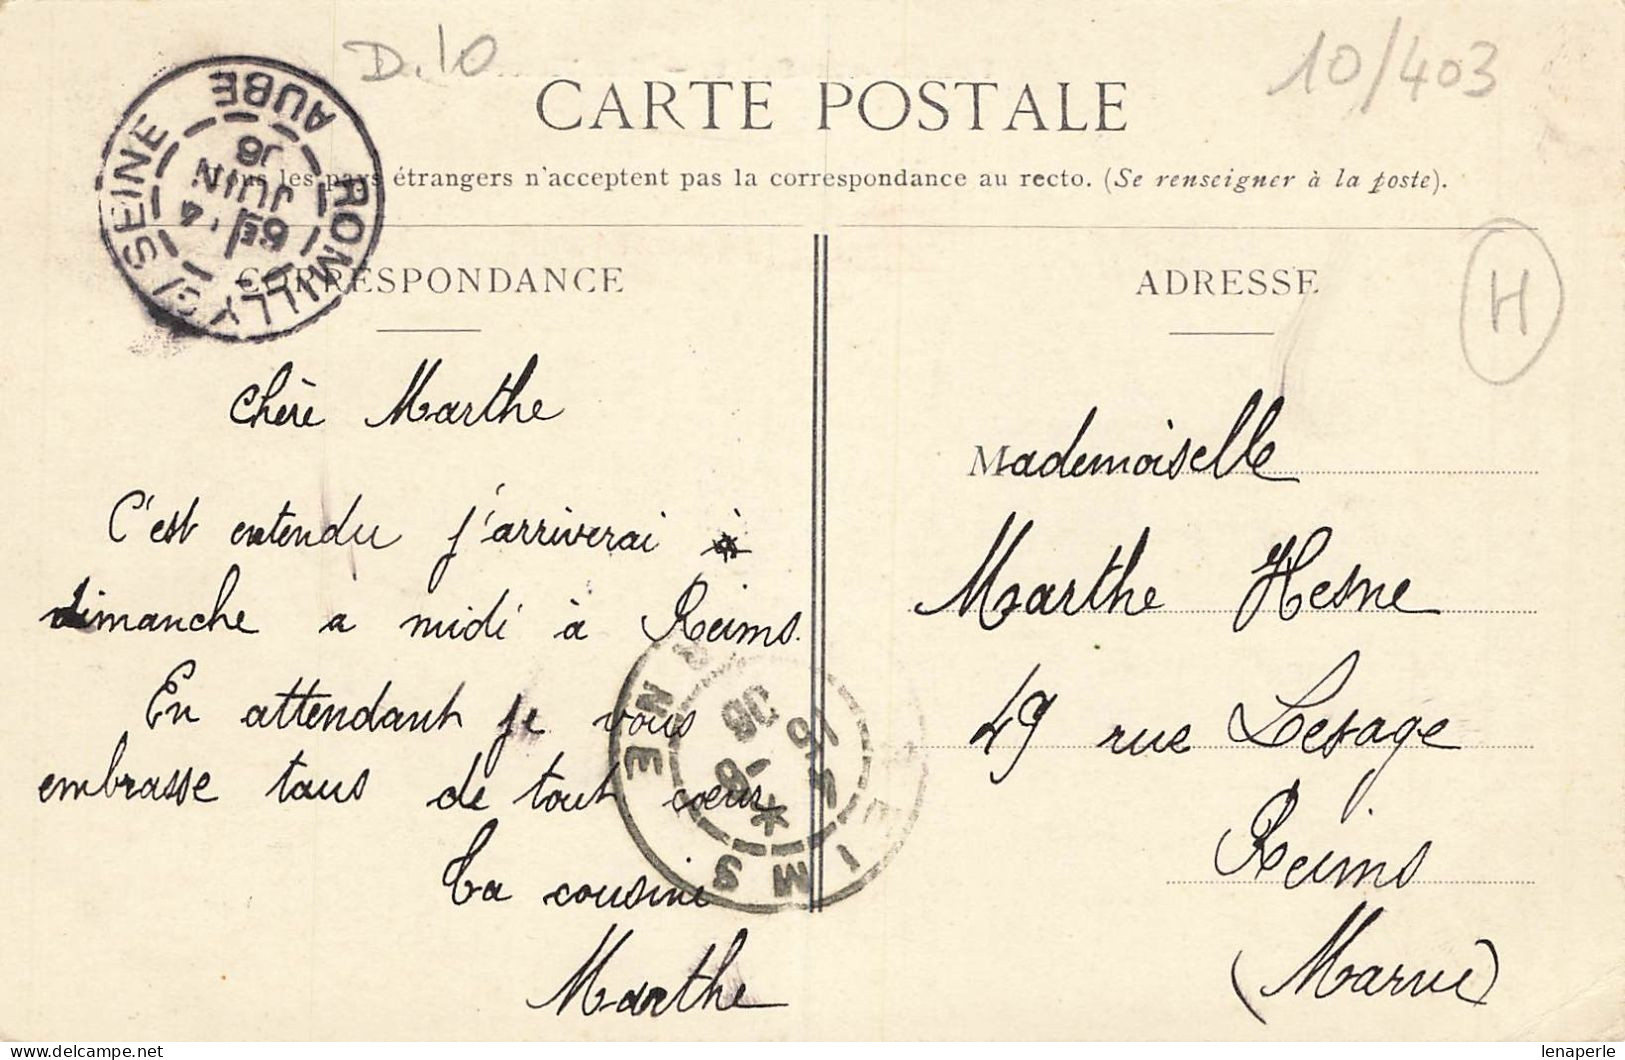 D.10
10/403
CARTE POSTALE
Tous les pays étrangers n'acceptent pas la correspondance au recto. (Se renseigner à la poste).
ROMILLY S/ SEINE
AUBE
6E
JUIN
06
CORRESPONDANCE
ADRESSE
H
Chère Marthe
C'est entendu j'arriverai
dimanche a midi à Reims.
En attendant je vous
embrasse tous de tout cœur
Ta cousine
Marthe
REIMS
06
Mademoiselle
Marthe Hesne
49 rue Lesage
Reims
(Marne)
lenaperle